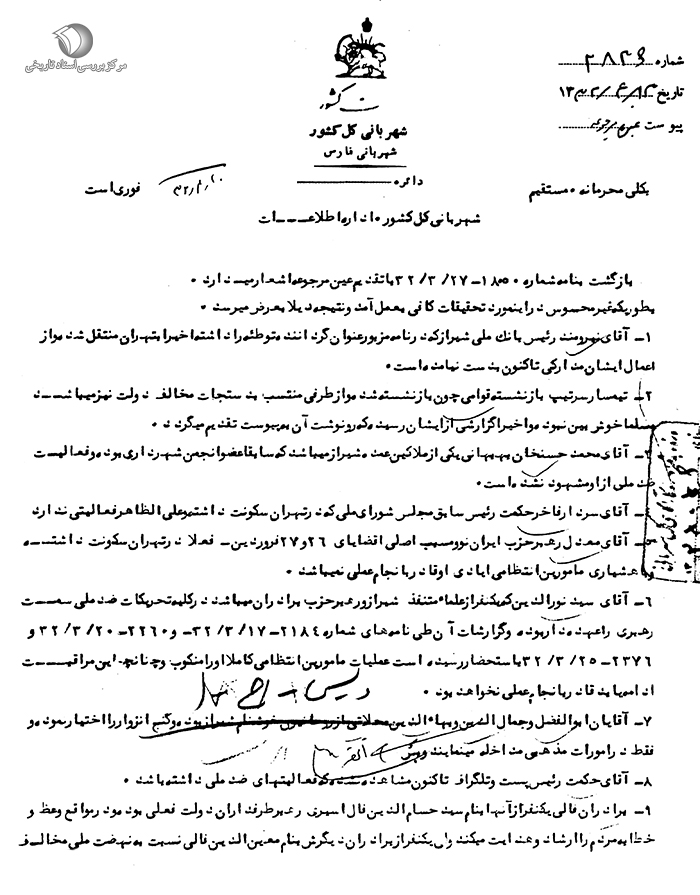 مرکز بررسی اسناد تاریخی
شماره ۲۸۳۶
تاریخ
پیوست
شهربانی کل کشور
شهربانی فارس
دائره
بکلی محرمانه مستقیم
فوری است
شهربانی کل کشور اداره اطلاعـــات
بازگشت بنامه شماره ۱۸۵۰–۳۲/۳/۲۷ با تقدیم عین مرجوعه اشعار میدارد.
بطوریکه غیر محسوس در اینمورد تحقیقات کافی بعمل آمد و نتیجه ذیلا بعرض میرسد
۱– آقای برومند رئیس بانک ملی شیراز که در نامه مزبور عنوان گردانند توطئه را داشته اخیرا بتهران منتقل شده و از
اعمال ایشان مدارکی تاکنون بدست نیامده است.
۲– تیمسار سرتیپ بازنشسته قوامی چون بازنشسته شده و از طرفی منتسب بدستجات مخالف دولت نیز میباشند
مسلما خوش بین نبوده و اخیرا گزارشی از ایشان رسیده که رونوشت آن بپیوست تقدیم میگردد.
۳– آقای محمد حسنخان بهبهانی یکی از ملاکین عمده شیراز میباشد که سابقا عضو انجمن شهرداری بوده و فعالیت
ضد ملی از او مشهود نشده است.
آقای سردار فاخر حکمت رئیس سابق مجلس شورای ملی که در تهران سکونت داشته و علی الظاهر فعالیتی ندارد
آقای معدل رهبر حزب ایران نو و مسبب اصلی اقضایای ۲۶ و ۲۷ فروردین– فعلا در تهران سکونت داشتـــه
و با هشیاری مامورین انتظامی ایادی او قادر بانجام عملی نمیباشند.
۶– آقای سید نورالدین که یکنفر از علماء متنفذ شیراز و رهبر حزب برادران میباشند در کلیه تحریکات ضد ملی سمت
رهبری را عهده دار بوده و گزارشات آن طی نامه های شماره ۲۱۸۴–۳۲/۳/۱۷– و ۲۲۶۰–۳۲/۳/۲۰ و
۲۳۷۶–۳۲/۳/۲۵ باستحضار رسیده است عملیات مامورین انتظامی کاملا او را منکوب و چنانچه این مراقبت
ادامه یابد قادر بانجام عملی نخواهد بود.
۷– آقایان ابوالفضل و جمال الدین و بهاء الدین محلاتی از روحانیون خوشنام شیراز بوده و کنج انزوا را اختیار نموده و
فقط در امورات مذهبی مداخله مینمایند
۸– آقای حکمت رئیس پست و تلگراف تاکنون مشاهده نشده که فعالیتهای ضد ملی داشته باشد.
۹– برادران فالی یکنفر از آنها بنام سید حسام الدین فال اسیری رهبر طرفداران دولت فعلی بوده و در مواقع وعظ و
خطابه مردم را ارشاد و هدایت میکند ولی یکنفر از برادران دیگرش بنام معین الدین فالی نسبت به نهضت ملی مخالف